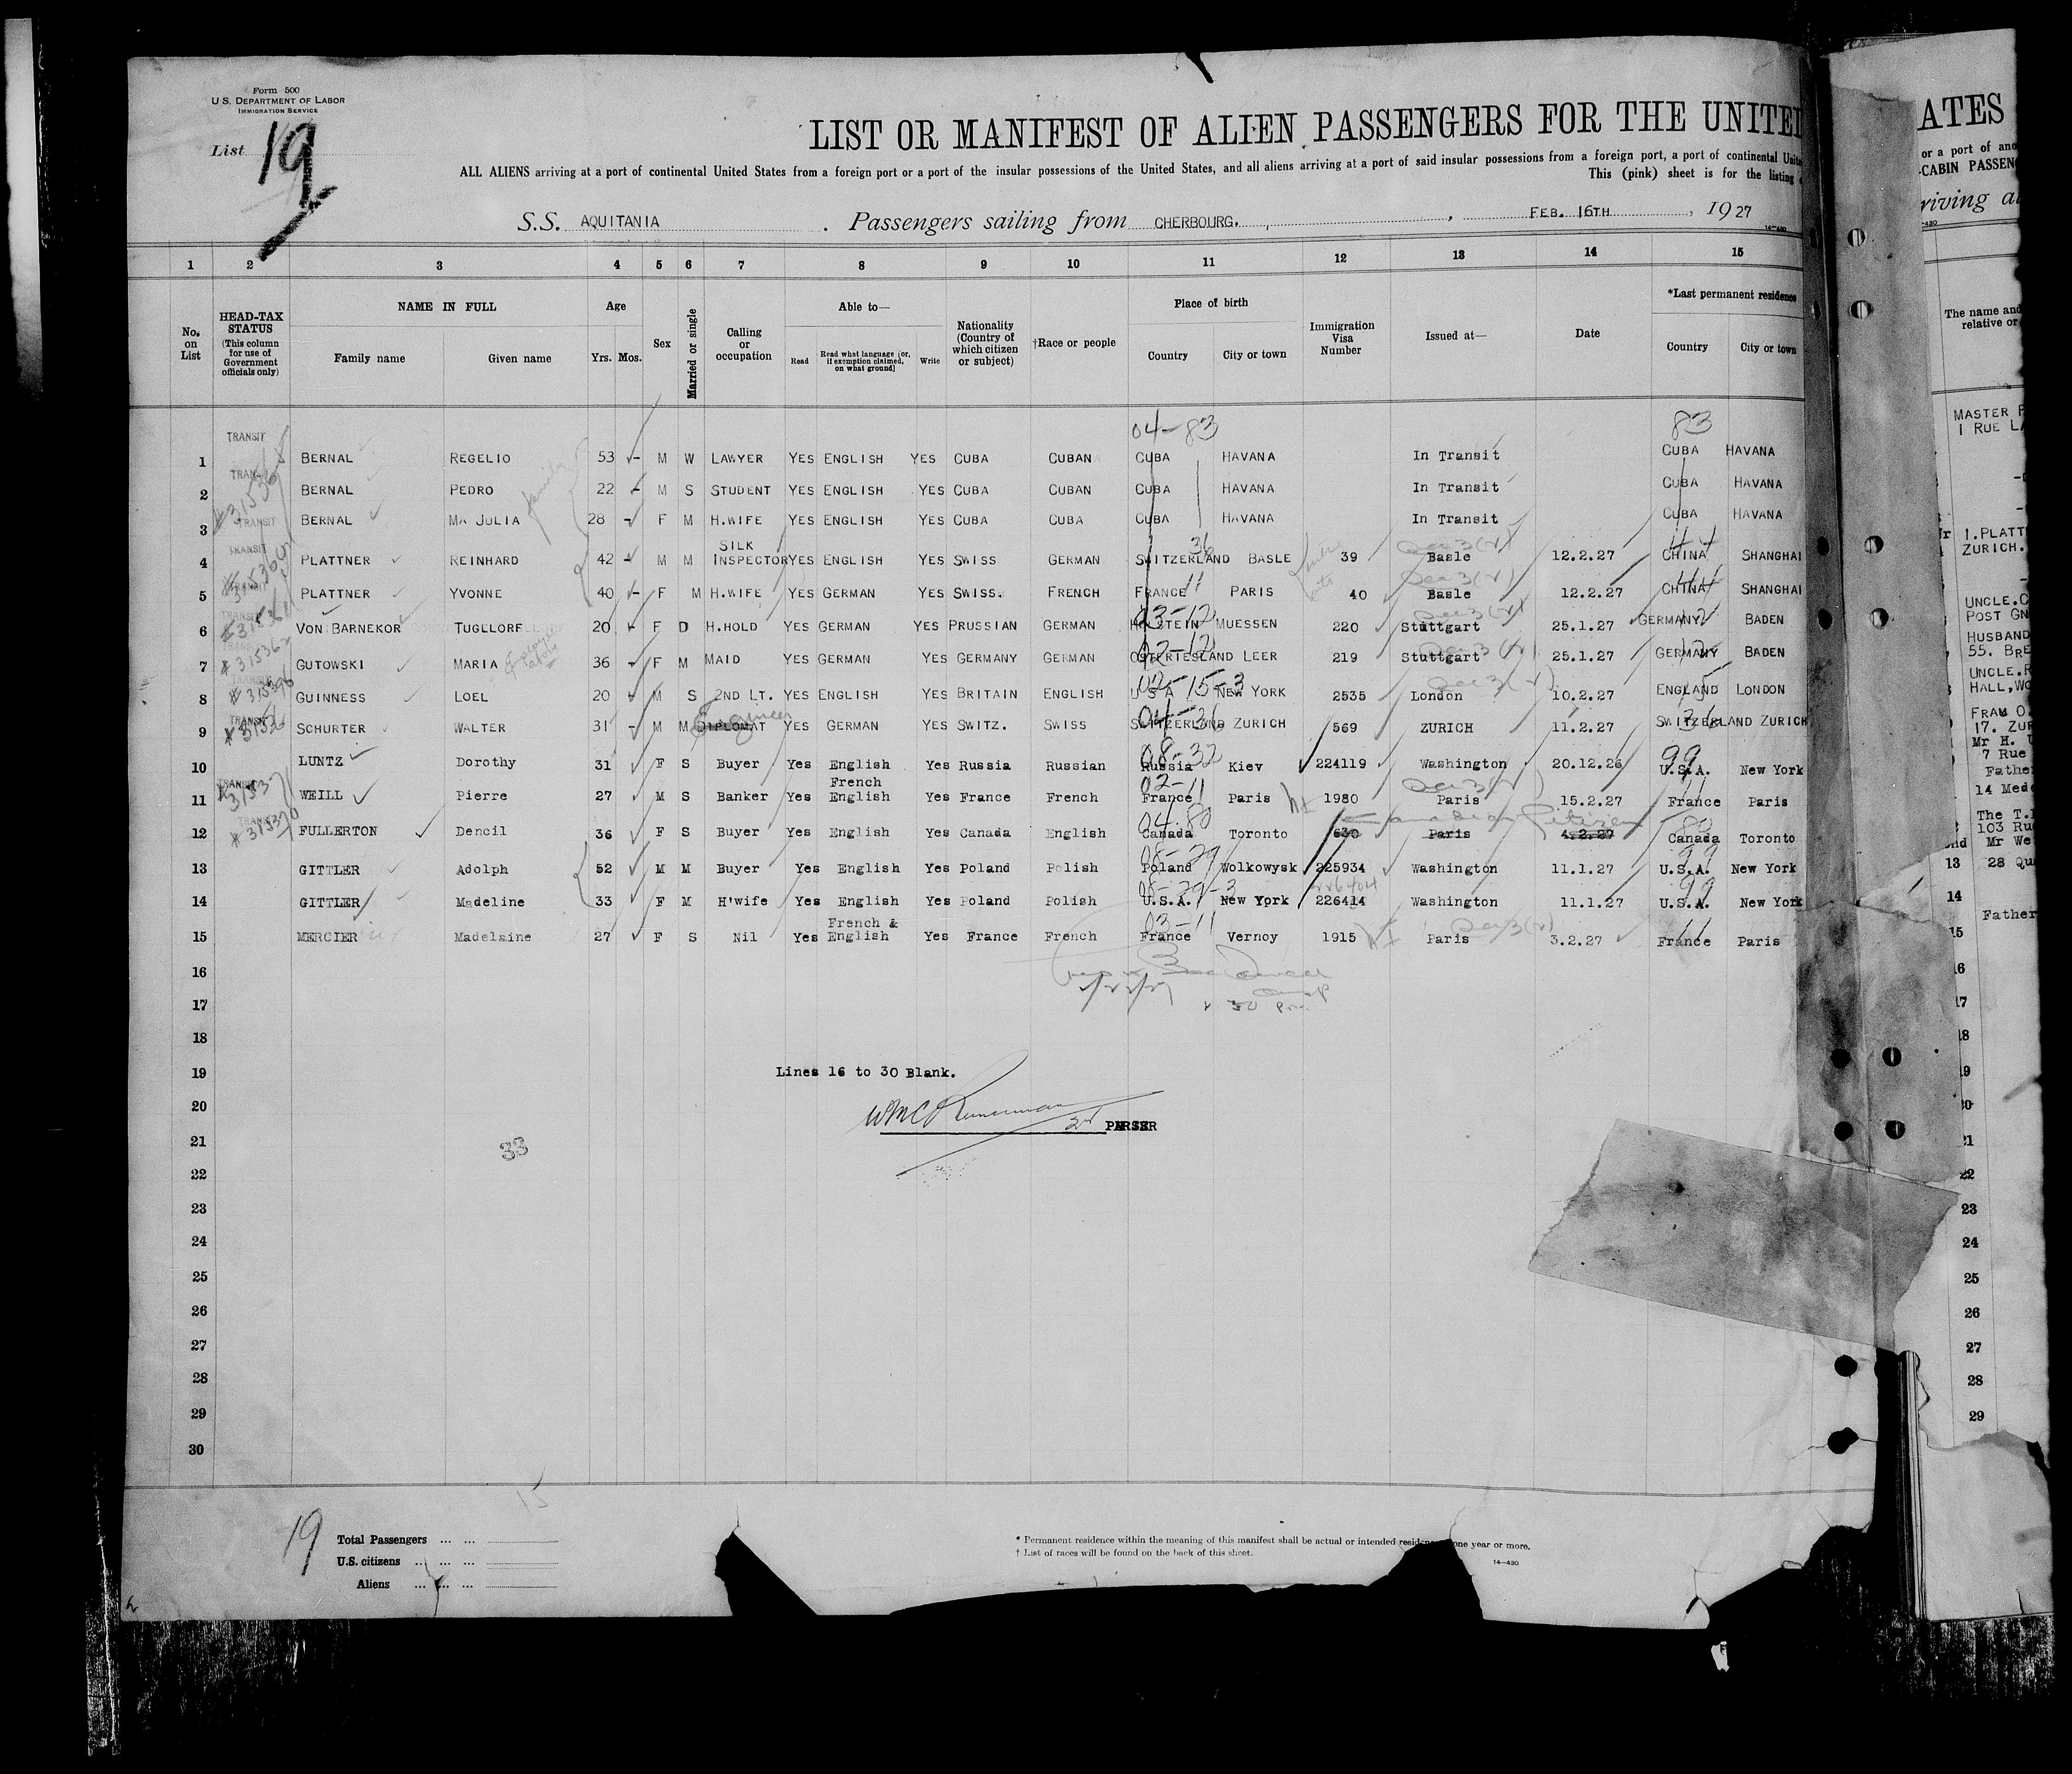 Form 500
U.S. DEPARTMENT OF LABOR
IMMIGRATION SERVICE
List 19
LIST OR MANIFEST OF ALIEN PASSENGERS FOR THE UNITED
ALL ALIENS arriving at a port of continental United States from a foreign port or a port of the insular possessions of the United States, and all aliens arriving at a port of said insular possessions from a foreign port, a port of continental
This (pink) sheet is for the listing
S.S. AQUITANIA. Passengers sailing from CHERBOURG., FEB. 16TH, 1927
14-430
1 2 3 4 5 6 7 8 9 10 11 12 13 14 15
No. on List
HEAD-TAX STATUS (This column for use of Government officials only)
NAME IN FULL
Family name Given name
Age
Yrs. Mos.
Sex
Married or single
Calling or occupation
Able to—
Read Read what language (or, if exemption claimed, on what ground) Write
Nationality (Country of which citizen or subject)
†Race or people
Place of birth
Country City or town
Immigration Visa Number
Issued at—
Date
*Last permanent residence
Country City or town
04-83 83
1 TRANSIT BERNAL REGELIO 53 M W LAWYER YES ENGLISH YES CUBA CUBAN CUBA HAVANA In Transit CUBA HAVANA
2 BERNAL PEDRO 22 M S STUDENT YES ENGLISH YES CUBA CUBAN CUBA HAVANA In Transit CUBA HAVANA
3 TRANSIT BERNAL MA JULIA 28 F M H.WIFE YES ENGLISH YES CUBA CUBA CUBA HAVANA In Transit CUBA HAVANA
4 TRANSIT PLATTNER REINHARD 42 M M SILK INSPECTOR YES ENGLISH YES SWISS GERMAN SWITZERLAND BASLE 39 Basle 12.2.27 CHINA SHANGHAI
5 PLATTNER YVONNE 40 F M H.WIFE YES GERMAN YES SWISS. FRENCH FRANCE PARIS 40 Basle 12.2.27 CHINA SHANGHAI
6 VON BARNEKOR TUGELORF 20 F D H.HOLD YES GERMAN YES PRUSSIAN GERMAN HOLSTEIN MUESSEN 220 Stuttgart 25.1.27 GERMANY BADEN
7 GUTOWSKI MARIA 36 F M MAID YES GERMAN YES GERMANY GERMAN OSTFRIESLAND LEER 219 Stuttgart 25.1.27 GERMANY BADEN
8 GUINNESS LOEL 20 M S 2ND LT. YES ENGLISH YES BRITAIN ENGLISH U S A NEW YORK 2535 London 10.2.27 ENGLAND LONDON
9 TRANSIT SCHURTER WALTER 31 M M DIPLOMAT Engineer YES GERMAN YES SWITZ. SWISS SWITZERLAND ZURICH 569 ZURICH 11.2.27 SWITZERLAND ZURICH
10 LUNTZ Dorothy 31 F S Buyer Yes English Yes Russia Russian Russia Kiev 224119 Washington 20.12.26 U.S.A. New York
11 TRANSIT WEILL Pierre 27 M S Banker Yes French English Yes France French France Paris 1980 Paris 15.2.27 France Paris
12 FULLERTON Dencil 36 F S Buyer Yes English Yes Canada English Canada Toronto 630 Paris 4.2.27 Canadian Citizen Canada Toronto
13 GITTLER Adolph 52 M M Buyer Yes English Yes Poland Polish Poland Wolkowysk 225934 Washington 11.1.27 U.S.A. New York
14 GITTLER Madeline 33 F M H'wife Yes English Yes Poland Polish U.S.A. New York 226414 Washington 11.1.27 U.S.A. New York
15 MERCIER Madelaine 27 F S Nil Yes French & English Yes France French France Vernoy 1915 Paris 3.2.27 France Paris
16
17
18
19 Lines 16 to 30 Blank.
20
21 2nd PURSER
33
22
23
24
25
26
27
28
29
30
19
Total Passengers
U.S. citizens
Aliens
* Permanent residence within the meaning of this manifest shall be actual or intended one year or more.
† List of races will be found on the back of this sheet.
14-430
ATES
or a port of
-CABIN
riving
The name and
relative or
MASTER
1 RUE
1.PLATT
ZURICH.
UNCLE.
POST
HUSBAND
55.
UNCLE.
HALL,
FRAU O.
17.
Mr H.
7 Rue
Father
14
The
103
Mr
13 28
14
Father
15
16
17
18
19
20
21
22
23
24
25
26
27
28
29